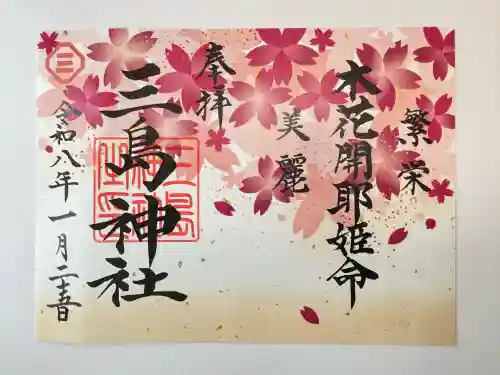 繁栄
木花開耶姫命
美麗
奉拝
三島神社
令和八年一月二十五日
三